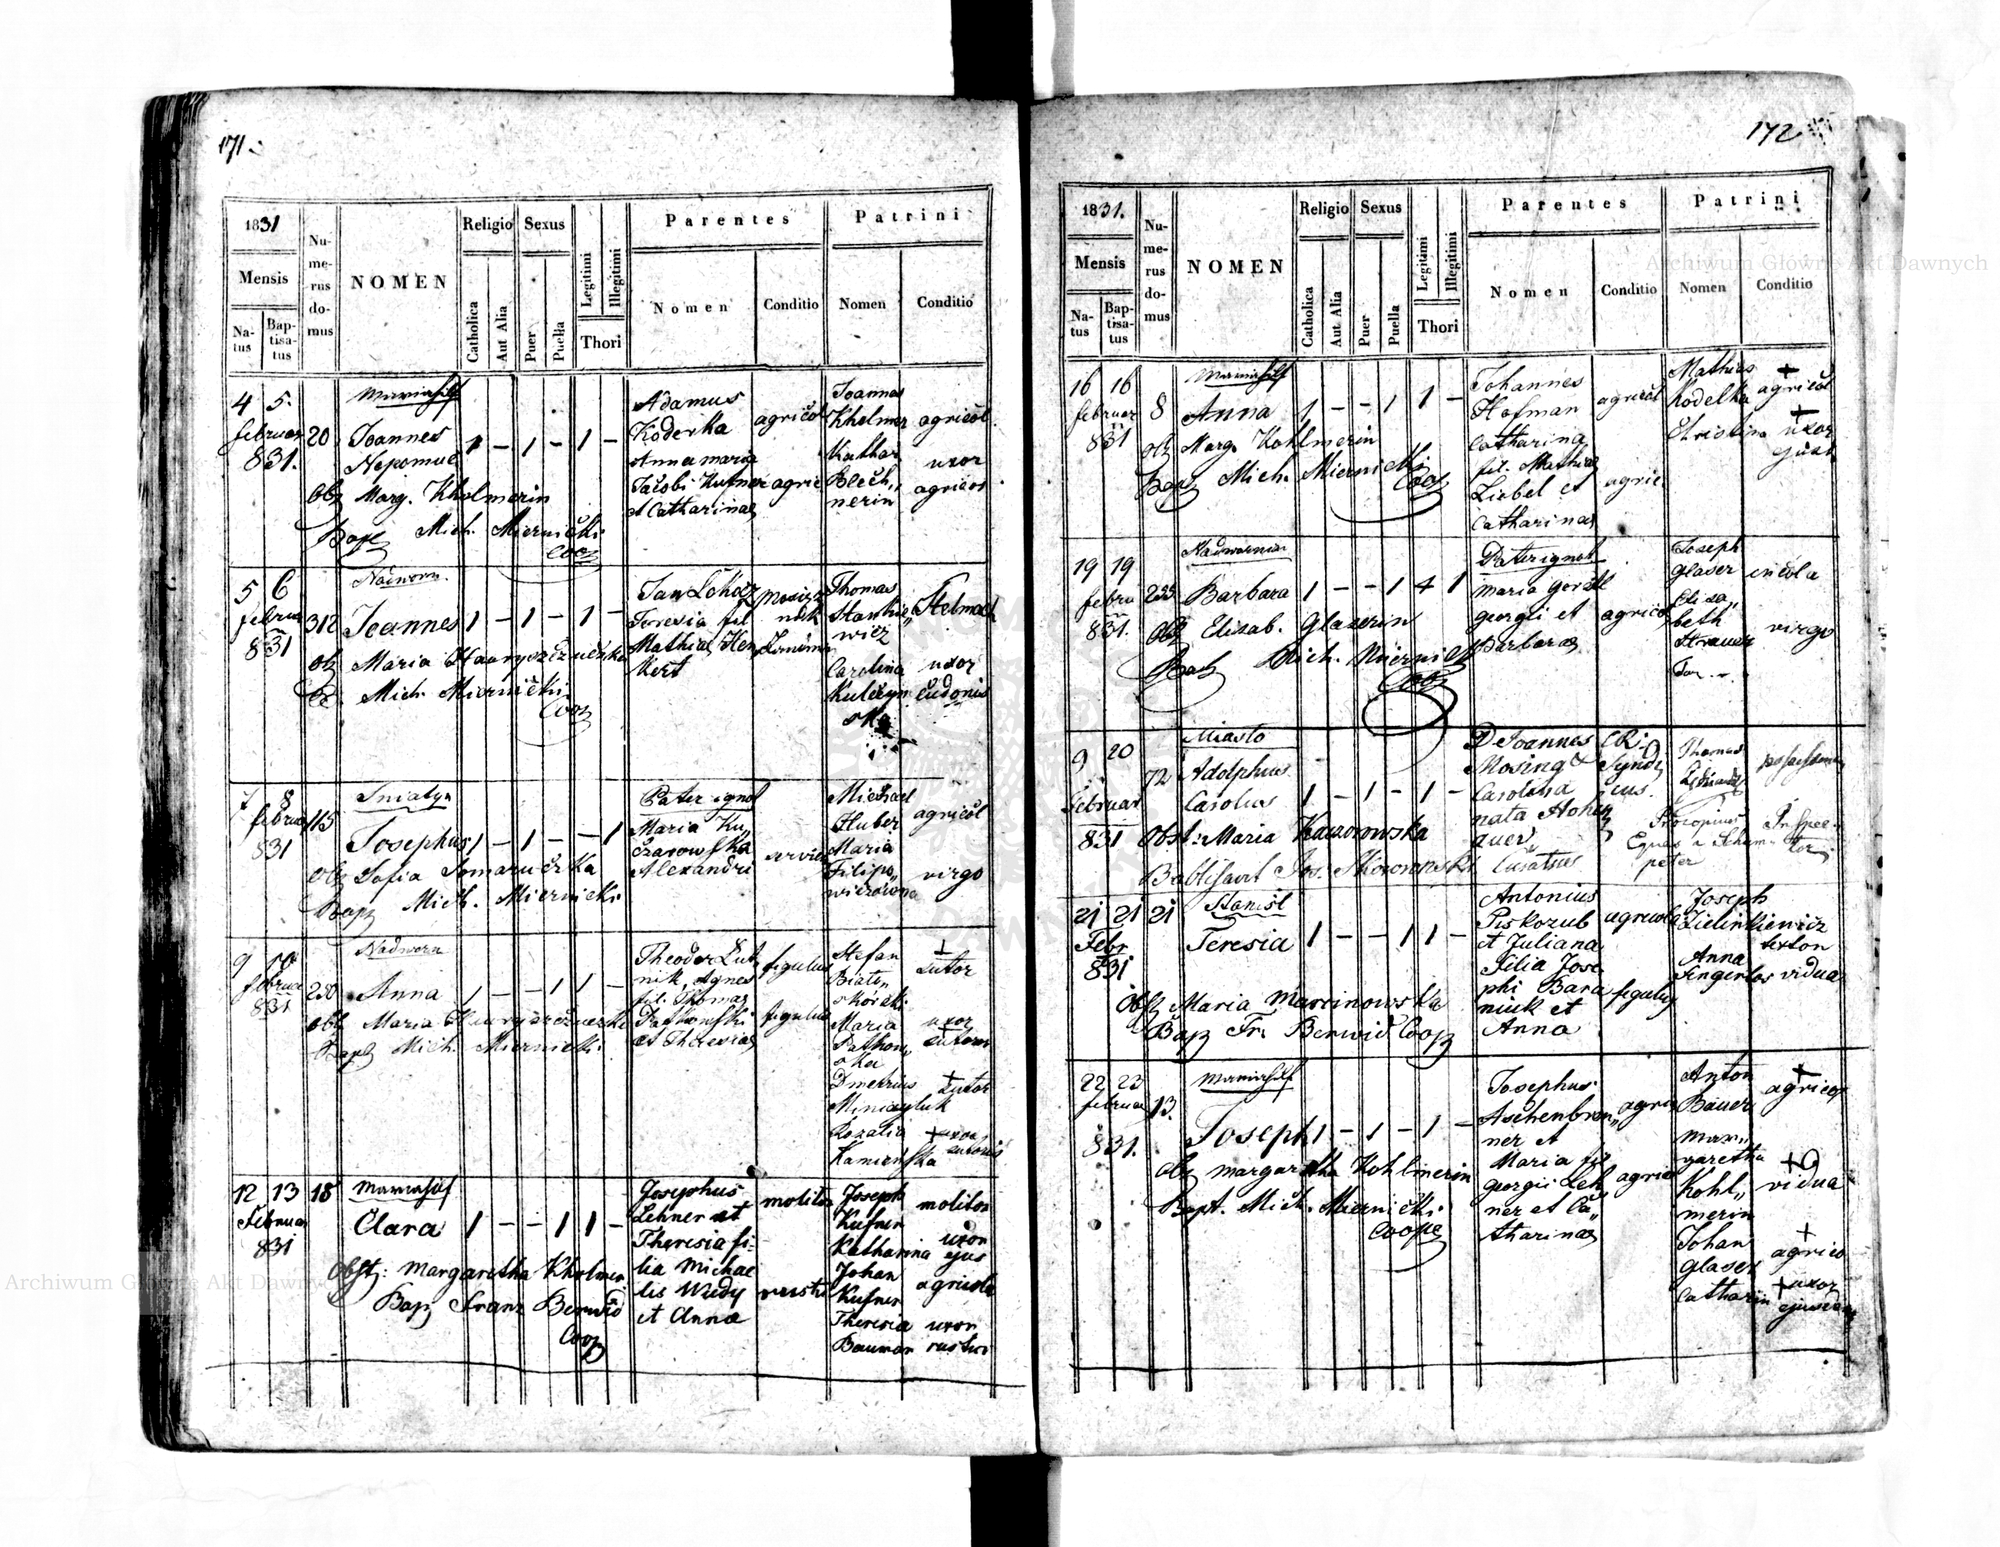 171.
1831
Mensis
Na-
tus
Bap-
tisa-
tus
Nu-
me-
rus
do-
mus
NOMEN
Religio
Catholica
Aut Alia
Sexus
Puer
Puella
Legitimi
Illegitimi
Thori
Parentes
Nomen
Conditio
Patrini
Nomen
Conditio
4 5.
februar
831.
20
Mariahilf
Joannes
Nepomuc
1 – 1 – 1 –
Obs Marg. Kholmerin
Bapt Mich. Miernicki
Coop
Adamus
Koderka
Anna maria
Jacobi Kufner
et Catharinae
agricol
agric
Joannes
Kholmer
Kathar
Blech„
nerin
agricol.
uxor
agricol
5 6
februar
831
312
Nadworn.
Joannes
1 – 1 – 1 –
ob Maria
Mich. Miernicki
Coop
Jan Scholz
Teresia fil
Mathiae Hen
kert
Thomas
Stankie„
wicz
Carolina
Kulczyn
ska
Stelmach
uxor
7 8
februar
831
115
Sniatyn
Josephus
1 – 1 – – 1
Obs Sofia Tomaruczka
Bapt Mich. Miernicki
Pater ignot
Maria Ku„
czarowska
Alexandri
Michael
Huber
Maria
Filipo„
wiczowna
agricol
virgo
9
februar
831
250
Nadworn
Anna
1 – – 1 1 –
obs Maria
Bapt Mich. Miernicki.
Theodor Lut
nik, Agnes
fil. Thomae
et Theresiae
figulus
figulus
Stefan
Biato„
skórski
Maria
ska
Dmetrius
Rozalia
Kamieńska
+
sutor
uxor
sutoris
+
sutor
+ uxor
sutoris
12 13
Februar
831
18
Mariahilf
Clara
1 – – 1 1 –
Obst: Margaretha Kholmer
Bap Franz Berwid
Coop
Josephus
Lehner et
Theresia fi-
lia Michae
lis Weidy
et Anna
molitor
rusti
Joseph
Kufner
Katharina
Johan
Kufner
Theresia
Bauman
molitor
uxor
ejus
agricola
uxor
rustici
172
1831.
Mensis
Na-
tus
Bap-
tisa-
tus
Nu-
me-
rus
do-
mus
NOMEN
Religio
Catholica
Aut Alia
Sexus
Puer
Puella
Legitimi
Illegitimi
Thori
Parentes
Nomen
Conditio
Patrini
Nomen
Conditio
16 16
februar
831
8
Mariahilf
Anna
1 – – 1 1 –
ob Marg. Kohlmerin
Bapt Mich. Miernicki
Coop
Johannes
Hofman
Catharina
fil. Mathiae
Liebel et
Catharinae
agricol
agric.
Mathias
Kodelka
Christina
+
agricol
+
uxor
ejus
19 19
februa
831.
255
Nadwornia
Barbara
1 – – 1 4 1
Obs Elisab. Glaserin
Bapt Mich. Miernicki
Coop
Pater ignot
maria
georgii et
Barbarae
agricol
Joseph
Glaser
Elisa„
beth
incola
virgo
9 20
Februar
831
72
Miasto
Adolphus
Carolus
1 – 1 – 1 –
Obst: Maria Kaczorowska
Babtisavit Jos. Skorowpski
D Joannes
Mosing &
Carolina
nata
Curatus
CR.
Syndi
cus.
Thomas
Procopius
Eques a Scham-
peter
Inspec-
tor
21 21 21
Febr
831
Stanisl
Teresia
1 – – 1 1 –
Obs Maria Marcinowska
Bap Fr. Berwid Coop
Antonius
Piskozub
et Juliana
Filia Jose
phi Bara
niuk et
Anna
agricola
figuly
Joseph
Zielinkiewicz
textor
Anna
vidua
22 23
februar
831.
13.
Mariahilf
Joseph
1 – 1 – 1 –
obs margaretha Kohlmerin
Bapt. Mich. Miernicki
Coope
Josephus
Aschenbren„
ner et
Maria fil
georgii Leh
ner et Ca„
tharinae
agric
agric
Anton
Bauer
Mar„
garetha
Kohl„
merin
Johan
Glaser
Catharin
+
agricol
vidua
+
agrico
+ uxor
Archiwum Główne Akt Dawnych
Archiwum Główne Akt Dawnych